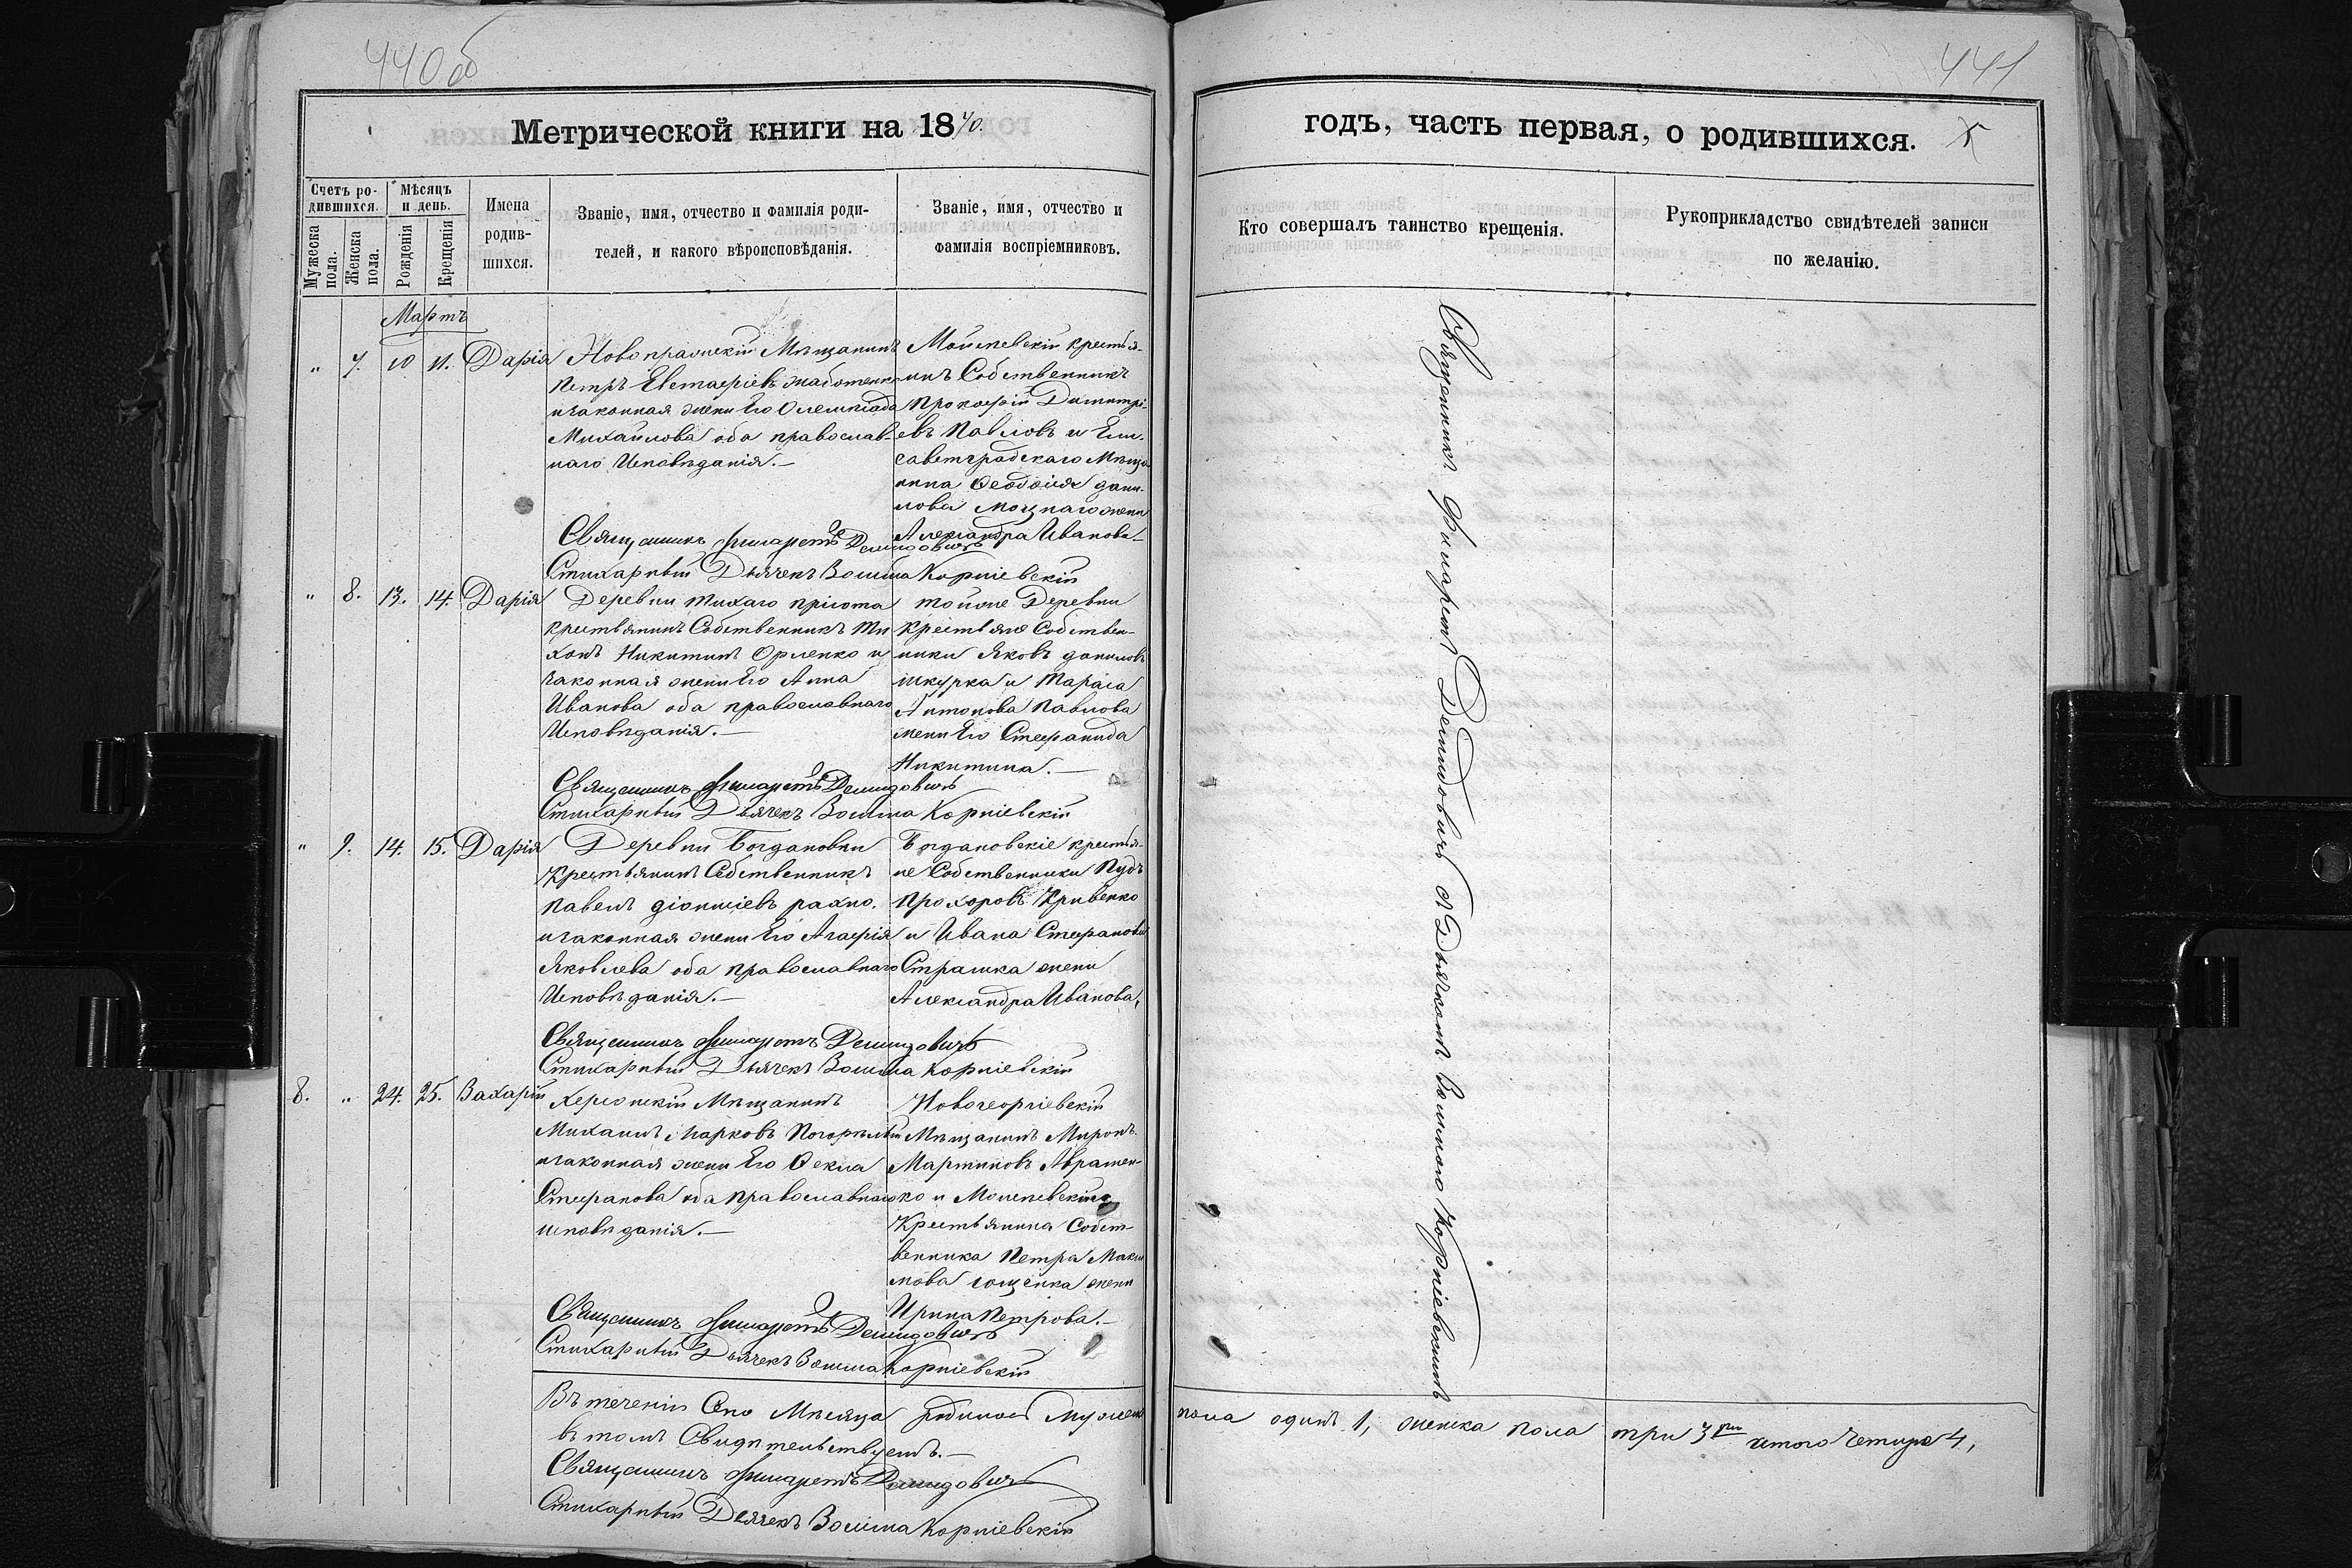 440об
441
Метрической книги на 1870.
годъ, часть первая, о родившихся.
Счетъ ро-
дившихся.
Мужеска
пола.
Женска
пола.
Мѣсяцъ
и день.
Рожденія
Крещенія
Имена
родив-
шихся.
Званіе, имя, отчество и фамилія роди-
телей, и какого вѣроисповѣданія.
Званіе, имя, отчество и
фамилія воспріемниковъ.
Кто совершалъ таинство крещенія.
Рукоприкладство свидѣтелей записи
по желанію.
Мартъ
" 7. 10 11. Дарія
Новопражскій Мѣщанинъ
Петръ Евстафіевъ
и законная жена Его Олемпіада
Михайлова оба православ-
наго Исповѣданія.—
Крестья-
нинъ Собственникъ
Прокофій Димитрі-
евъ Павловъ и Ели-
саветградскаго Мѣща-
нина Ѳеодосія Дани-
лова жена
Александра Иванова—
Священникъ Филаретъ Демидовичъ
Стихарный Дьячекъ Зосима Корніевскій
" 8. 13. 14. Дарія
Деревни Тихаго пріюта
крестьянинъ Собственникъ Ти
хонъ Никитинъ Орленко и
законная жена Его Анна
Иванова оба православнаго
Исповѣданія.—
тойже Деревни
Крестьяне Собствен-
ники Яковъ Даниловъ
Шкурка и Тараса
Антонова Павлова
жена Его Стефанида
Никитина.—
Священникъ Филаретъ Демидовичъ
Стихарный Дьячекъ Зосима Корніевскій
" 9. 14. 15. Дарія
Деревни Богдановки
Крестьянинъ Собственникъ
Павелъ Діонисіевъ Рахно.
и законная жена Его Агафія
Яковлева оба православнаго
Исповѣданія.—
Богдановскіе крестья-
не Собственники Пудъ
Прохоровъ Кривенко
и Ивана Стефанова
Страшка жена
Александра Иванова,
Священникъ Филаретъ Демидовичъ
Стихарный Дьячекъ Зосима Корніевскій
8. " 24. 25. Захарій
Херсонскій Мѣщанинъ
Михаилъ Марковъ Погорѣлый
и законная жена Его Ѳекла
Стефанова оба православнаго
исповѣданія.—
Новогеоргіевскій
Мѣщанинъ Миронъ
Мартиновъ Авраменко
и
Крестьянина Собст-
венника Петра Макси
мова жена
Ирина Петрова.—
Священникъ Филаретъ Демидовичъ
Стихарный Дьячекъ Зосима Корніевскій
Священникъ Филаретъ Демидовичъ съ Дьячкомъ Зосимою Корніевскимъ
Въ теченіи Сего Мѣсяца родилось Мужеск
пола одинъ 1, женска пола три 3 итого Четыре 4,
въ томъ Свидѣтельствуемъ.—
Священникъ Филаретъ Демидовичъ
Стихарный Дьячекъ Зосима Корніевскій